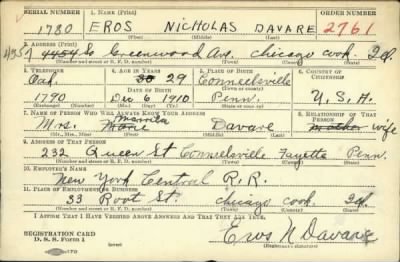 SERIAL NUMBER 1. NAME (Print) ORDER NUMBER
1780 EROS NICHOLAS DAVARE 2761
(First) (Middle) (Last)
2. ADDRESS (Print)
4351 4454 So Greenwood Ave. Chicago Cook Ill.
(Number and street or R. F. D. number) (Town) (County) (State)
3. TELEPHONE 4. AGE IN YEARS 5. PLACE OF BIRTH 6. COUNTRY OF CITIZENSHIP
Oak. 30 29 Connellsville
DATE OF BIRTH
1790 Dec 6 1910 Penn. U.S.A.
(Exchange) (Number) (Mo.) (Day) (Yr.) (State or country)
7. NAME OF PERSON WHO WILL ALWAYS KNOW YOUR ADDRESS 8. RELATIONSHIP OF THAT PERSON
Mrs. Davare mother wife
(Mr., Mrs., Miss) (First) (Middle) (Last)
9. ADDRESS OF THAT PERSON
232 Queen St Connelsville Fayette Penn.
(Number and street or R. F. D. number) (Town) (County) (State)
10. EMPLOYER'S NAME
New York Central R.R.
11. PLACE OF EMPLOYMENT OR BUSINESS
33 Root St. Chicago Cook Ill.
(Number and street or R. F. D. number) (Town) (County) (State)
I AFFIRM THAT I HAVE VERIFIED ABOVE ANSWERS AND THAT THEY ARE TRUE.
REGISTRATION CARD
D. S. S. Form 1 Eros N Davare
(over) (Registrant's signature)